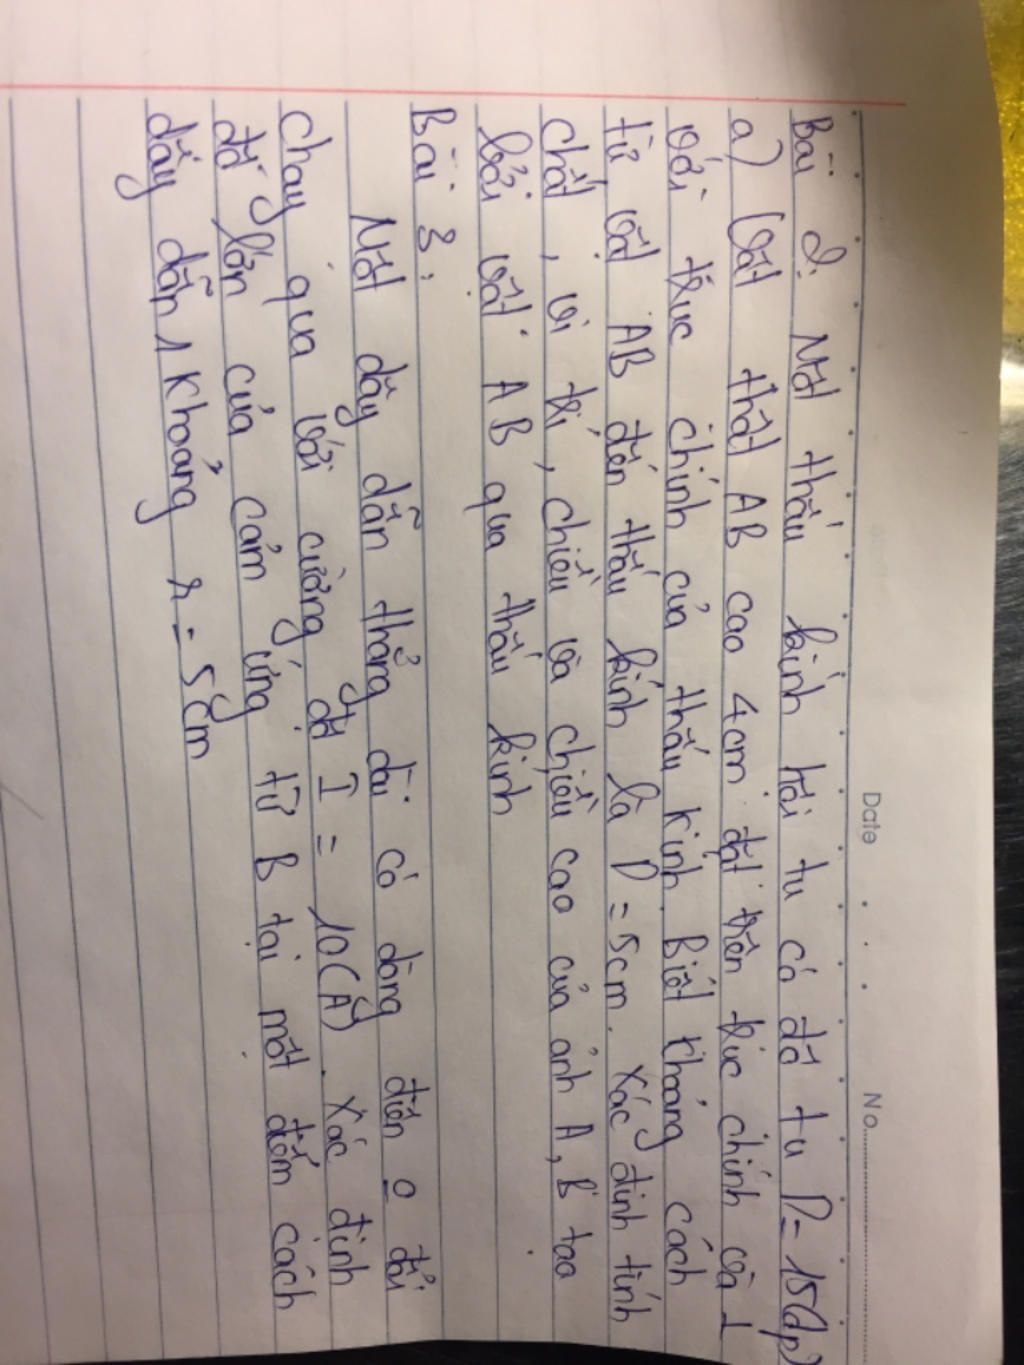 Date . . . No.
Bài 2: Một thấu kính hội tụ có độ tụ D = 15(dp)
a) Vật thật AB cao 4cm đặt trên trục chính và ⊥
với trục chính của thấu kính. Biết khoảng cách
từ vật AB đến thấu kính là D = 5cm. Xác định tính
chất, vị trí, chiều và chiều cao của ảnh A, B tạo
bởi vật AB qua thấu kính
Bài 3:
Một dây dẫn thẳng dài có dòng điện o đổi
chạy qua với cường độ I = 10(A). Xác định
độ lớn của cảm ứng từ B tại một đểm cách
dây dẫn 1 khoảng r = 5cm